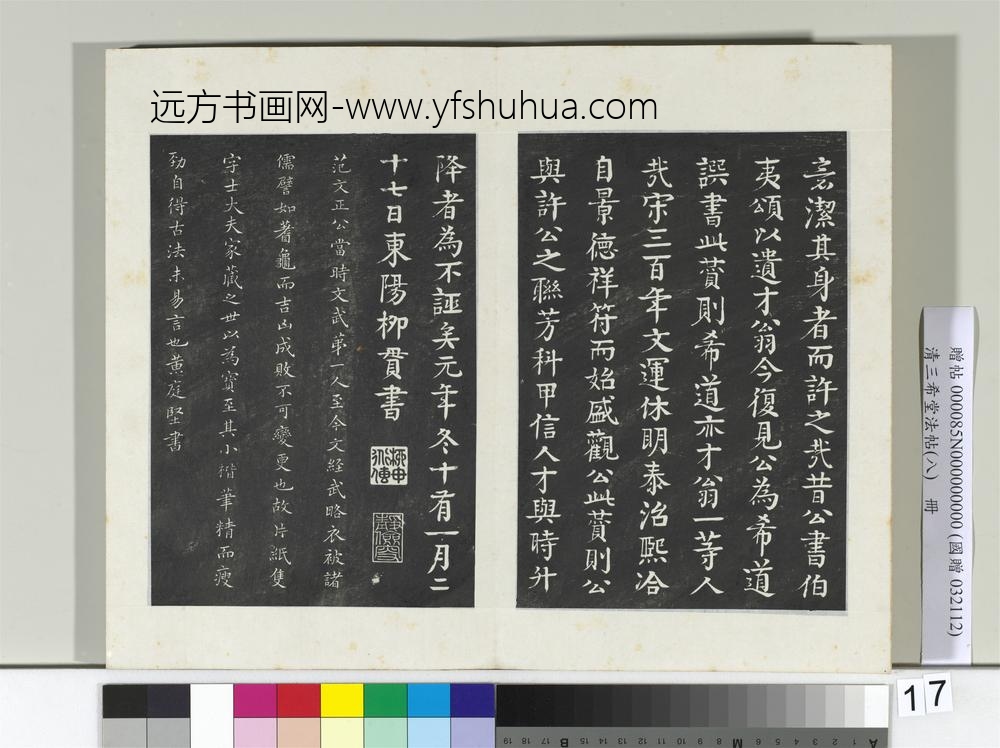 远方书画网-www.yfshuhua.com
潔其身者而許之哉昔公書伯
夷頌以遺才翁今復見公為希道
譔書此蕒則希道亦才翁一等人
哉宋三百年文運休明泰治熙洽
自景德祥符而始盛觀公此蕒則公
與許公之聯芳科甲信人才與時升
降者為不誣矣元年冬十有一月二
十七日東陽柳貫書
范文正公當時文武第一人至今文經武略衣被諸
儒譬如蓍龜而吉凶成敗不可變更也故片紙隻
字士大夫家藏之世以為寶至其小楷筆精而瘦
勁自得古法未易言也黃庭堅書
贈帖 000085N000000000 (國贈 032112)
清三希堂法帖(八) 冊
17